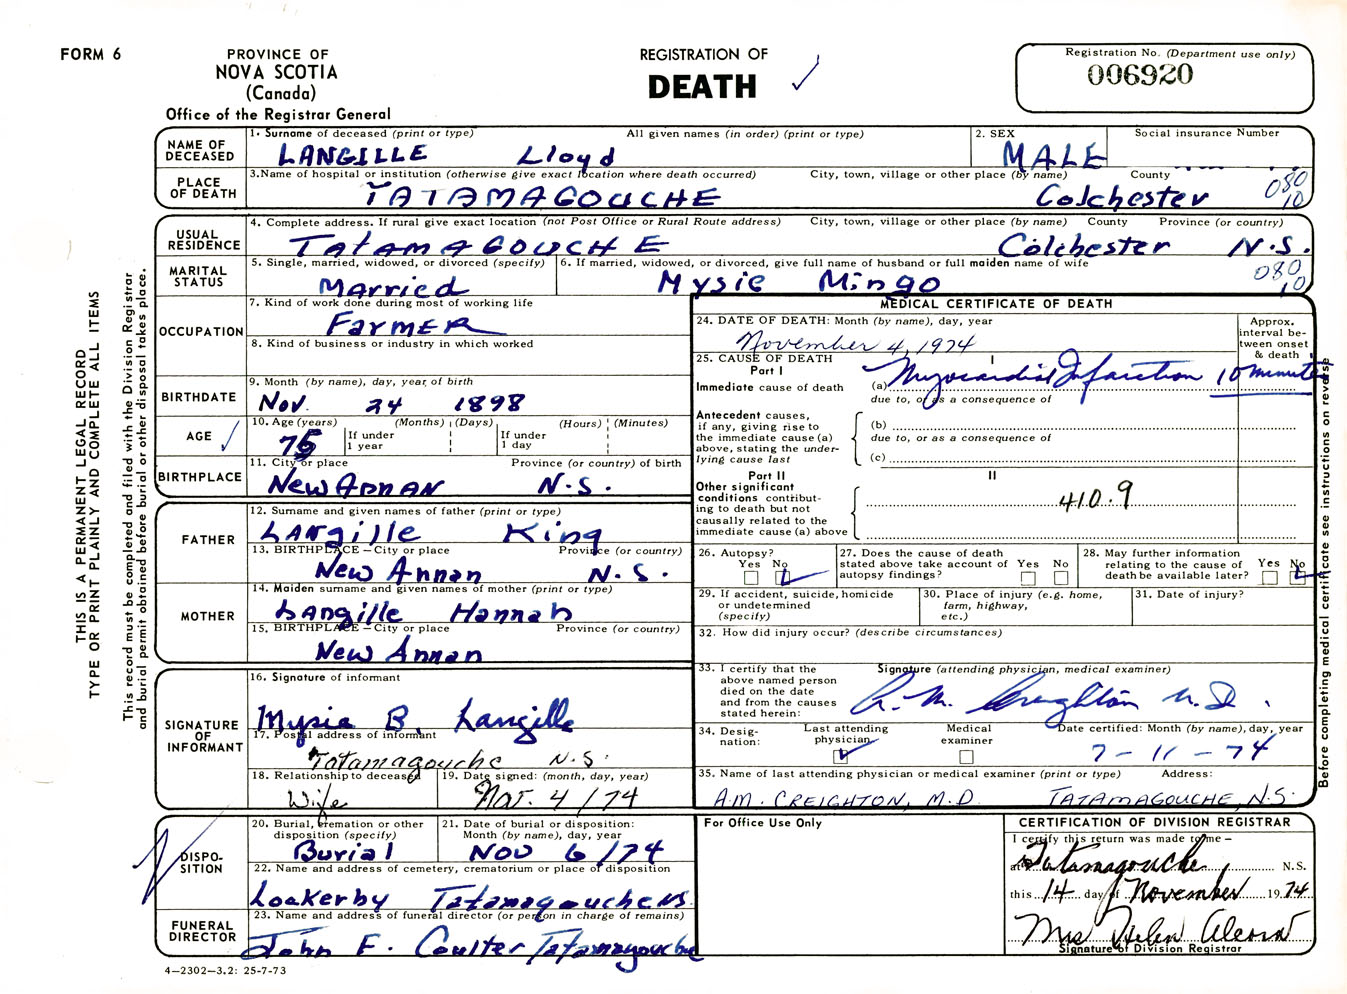 FORM 6
PROVINCE OF
NOVA SCOTIA
(Canada)
Office of the Registrar General
REGISTRATION OF
DEATH
Registration No. (Department use only)
006920
NAME OF DECEASED
1. Surname of deceased (print or type) All given names (in order) (print or type)
LANGILLE Lloyd
2. SEX
MALE
Social insurance Number
PLACE OF DEATH
3. Name of hospital or institution (otherwise give exact location where death occurred) City, town, village or other place (by name) County
TATAMAGOUCHE Colchester
080
10
USUAL RESIDENCE
4. Complete address. If rural give exact location (not Post Office or Rural Route address) City, town, village or other place (by name) County Province (or country)
TATAMAGOUCHE Colchester N.S.
080
10
MARITAL STATUS
5. Single, married, widowed, or divorced (specify)
Married
6. If married, widowed, or divorced, give full name of husband or full maiden name of wife
Mysie Mingo
OCCUPATION
7. Kind of work done during most of working life
Farmer
8. Kind of business or industry in which worked
BIRTHDATE
9. Month (by name), day, year of birth
Nov. 24 1898
AGE
10. Age (years) (Months) (Days) (Hours) (Minutes)
75
If under 1 year
If under 1 day
BIRTHPLACE
11. City or place Province (or country) of birth
New Annan N.S.
FATHER
12. Surname and given names of father (print or type)
Langille King
13. BIRTHPLACE – City or place Province (or country)
New Annan N.S.
MOTHER
14. Maiden surname and given names of mother (print or type)
Langille Hannah
15. BIRTHPLACE – City or place Province (or country)
New Annan
SIGNATURE OF INFORMANT
16. Signature of informant
Mysie B. Langille
17. Postal address of informant
Tatamagouche N.S.
18. Relationship to deceased
Wife
19. Date signed: (month, day, year)
Nov. 4/74
DISPOSITION
20. Burial, cremation or other disposition (specify)
Burial
21. Date of burial or disposition: Month (by name), day, year
Nov 6/74
22. Name and address of cemetery, crematorium or place of disposition
Lockerby Tatamagouche NS.
FUNERAL DIRECTOR
23. Name and address of funeral director (or person in charge of remains)
John F. Coulter Tatamagouche
4–2302–3.2: 25-7-73
MEDICAL CERTIFICATE OF DEATH
24. DATE OF DEATH: Month (by name), day, year
November 4, 1974
Approx. interval between onset & death
25. CAUSE OF DEATH
Part I
I
Immediate cause of death
(a) Myocardial Infarction 10 minutes
due to, or as a consequence of
Antecedent causes, if any, giving rise to the immediate cause (a) above, stating the underlying cause last
(b)
due to, or as a consequence of
(c)
Part II
II
Other significant conditions contributing to death but not causally related to the immediate cause (a) above
410.9
26. Autopsy?
Yes No
27. Does the cause of death stated above take account of autopsy findings?
Yes No
28. May further information relating to the cause of death be available later?
Yes No
29. If accident, suicide, homicide or undetermined (specify)
30. Place of injury (e.g. home, farm, highway, etc.)
31. Date of injury?
32. How did injury occur? (describe circumstances)
33. I certify that the above named person died on the date and from the causes stated herein:
Signature (attending physician, medical examiner)
A. M. Creighton M.D.
34. Designation:
Last attending physician
Medical examiner
Date certified: Month (by name), day, year
7-11-74
35. Name of last attending physician or medical examiner (print or type) Address:
A.M. CREIGHTON, M.D. TATAMAGOUCHE, N.S.
For Office Use Only
CERTIFICATION OF DIVISION REGISTRAR
I certify this return was made to me –
at Tatamagouche N.S.
this 14 day of November 1974
Mrs Helen
Signature of Division Registrar
THIS IS A PERMANENT LEGAL RECORD
TYPE OR PRINT PLAINLY AND COMPLETE ALL ITEMS
This record must be completed and filed with the Division Registrar
and burial permit obtained before burial or other disposal takes place.
Before completing medical certificate see instructions on reverse